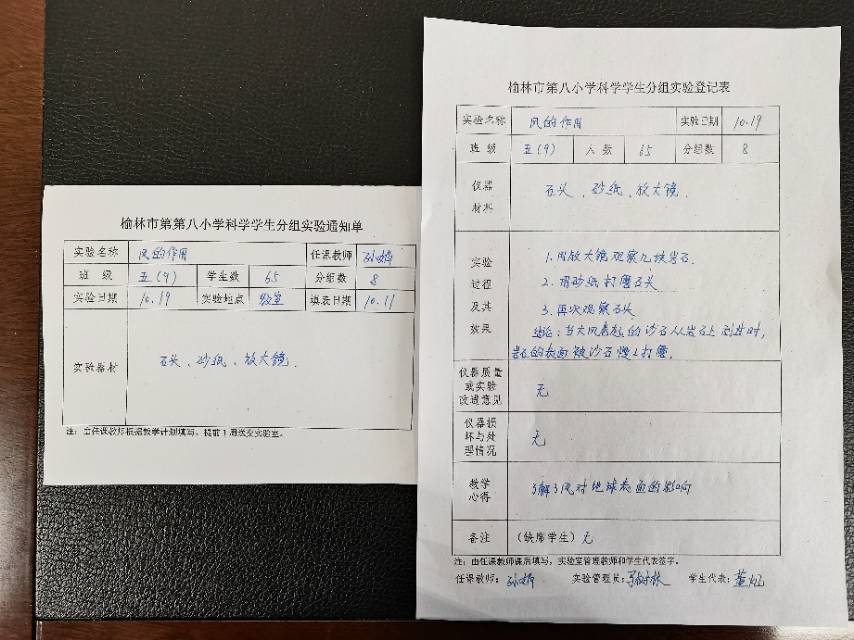 榆林市第第八小学科学学生分组实验通知单
实验名称 风的作用 任课教师
班 级 五(9) 学生数 65 分组数 8
实验日期 10.19 实验地点 教室 填表日期 10.11
实验器材 石头、砂纸、放大镜.
注:由任课教师根据教学计划填写,提前1周送交实验室。
榆林市第八小学科学学生分组实验登记表
实验名称 风的作用 实验日期 10.19
班 级 五(9) 人 数 65 分组数 8
仪器材料 石头、砂纸、放大镜.
实验过程及其效果
1.用放大镜观察几块岩石.
2.用砂纸打磨石头
3.再次观察石头
结论:当大风卷起的沙石从岩石上刮过时,
岩石的表面被沙石慢慢打磨.
仪器质量或实验改进意见 无
仪器损坏与处理情况 无
教学心得 了解了风对地球表面的影响
备注 (缺席学生)无
注:由任课教师课后填写,实验室管理教师和学生代表签字。
任课教师: 实验管理员: 学生代表: